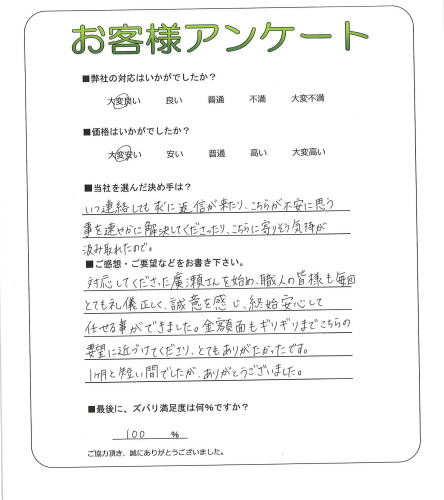 お客様アンケート
■弊社の対応はいかがでしたか？
大変良い 良い 普通 不満 大変不満
■価格はいかがでしたか？
大変安い 安い 普通 高い 大変高い
■当社を選んだ決め手は？
いつ連絡してもすぐに返信が来たり、こちらが不安に思う
事を速やかに解決してくださったり、こちらに寄りそう気持が
汲み取れたので。
■ご感想・ご要望などをお書き下さい。
対応してくださった廣瀬さんを始め、職人の皆様も毎回
とても礼儀正しく、誠意を感じ、終始安心して
任せる事ができました。金額面もギリギリまでこちらの
要望に近づけてくださり、とてもありがたかったです。
1ヶ月と短い間でしたが、ありがとうございました。
■最後に、ズバリ満足度は何%ですか？
100 %
ご協力頂き、誠にありがとうございました。